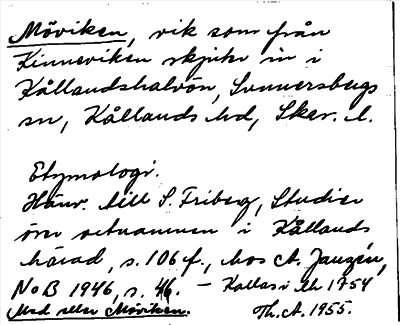 Möviken, vik som från
Kinneviken skjuter in i
Kållandshalvön, Sunnersbergs
sn, Kållands hd, Skar. l.
Etymologi.
Hänv. till S. Friberg, Studier
över ortnamnen i Kållands
härad, s. 106 f., hos A. Janzén,
NoB 1946, s. 46. – Kallas i Lh 1754
Mad eller Möviken. Th. A. 1955.